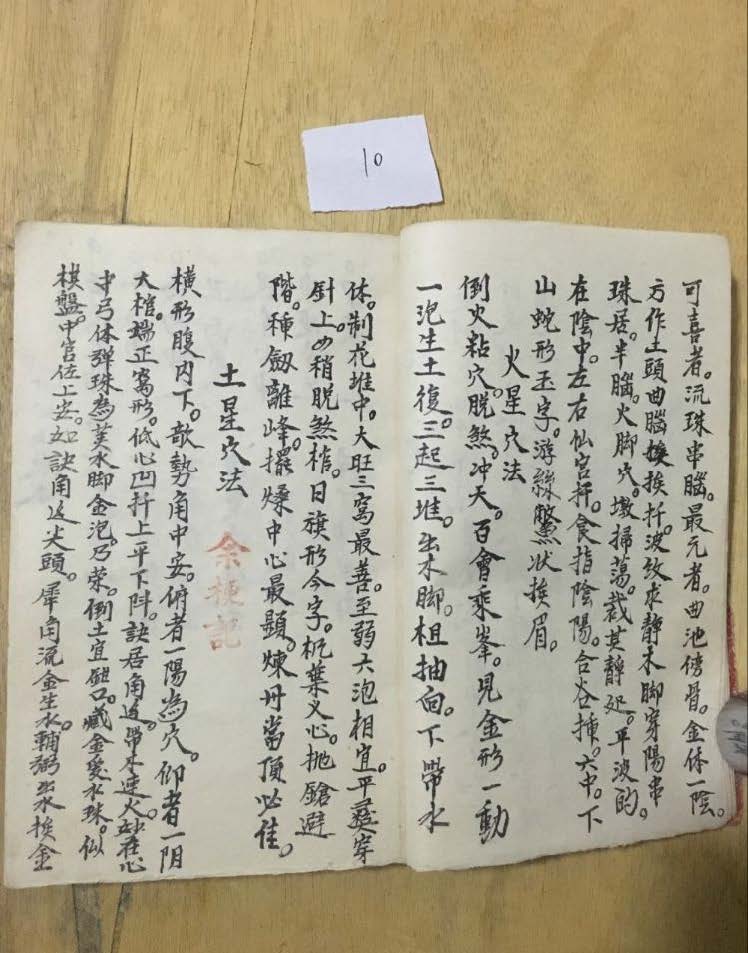 10
可喜者。流珠串腦。最元者。曲池傍骨。金体一陰。
方作土頭曲腦挨扦。波紋求靜木脚穿陽串
珠居。半腦。火脚穴。墩掃蕩。裁其靜処。平波的。
在陰中。左右仙宮扦。食指陰陽。合谷揀。六中。下
山蛇形玉字。游絲鱉状挨眉。
火星穴法
倒火粘穴。脱煞。冲天。百會乘峯。見金形一動
一泡生土復。三起三堆。出木脚。柤抽向。下帶水
体。制花堆中。大旺三窩最善。至弱六泡相宜。平葵穿
尉上。必稍脱煞棺。日旗形今字。杌葉义心。抛鎗避
階。種劔離峰。擺燥中心最顯。煉丹當頂必佳。
土星穴法
余梗記
横形腹内下。欹勢角中安。俯者一陽為穴。仰者一阴
大棺。端正窩形。低心凹扦上平下阧。訣居角返。帶木連火。妙在心
寸弓体弹珠為美水脚金泡。乃荣。倒土宜缺口。藏金愛水珠。似
棋盤。中宫位上安。如訣角返尖頭。犀角流金生水。輔弼出水挨金